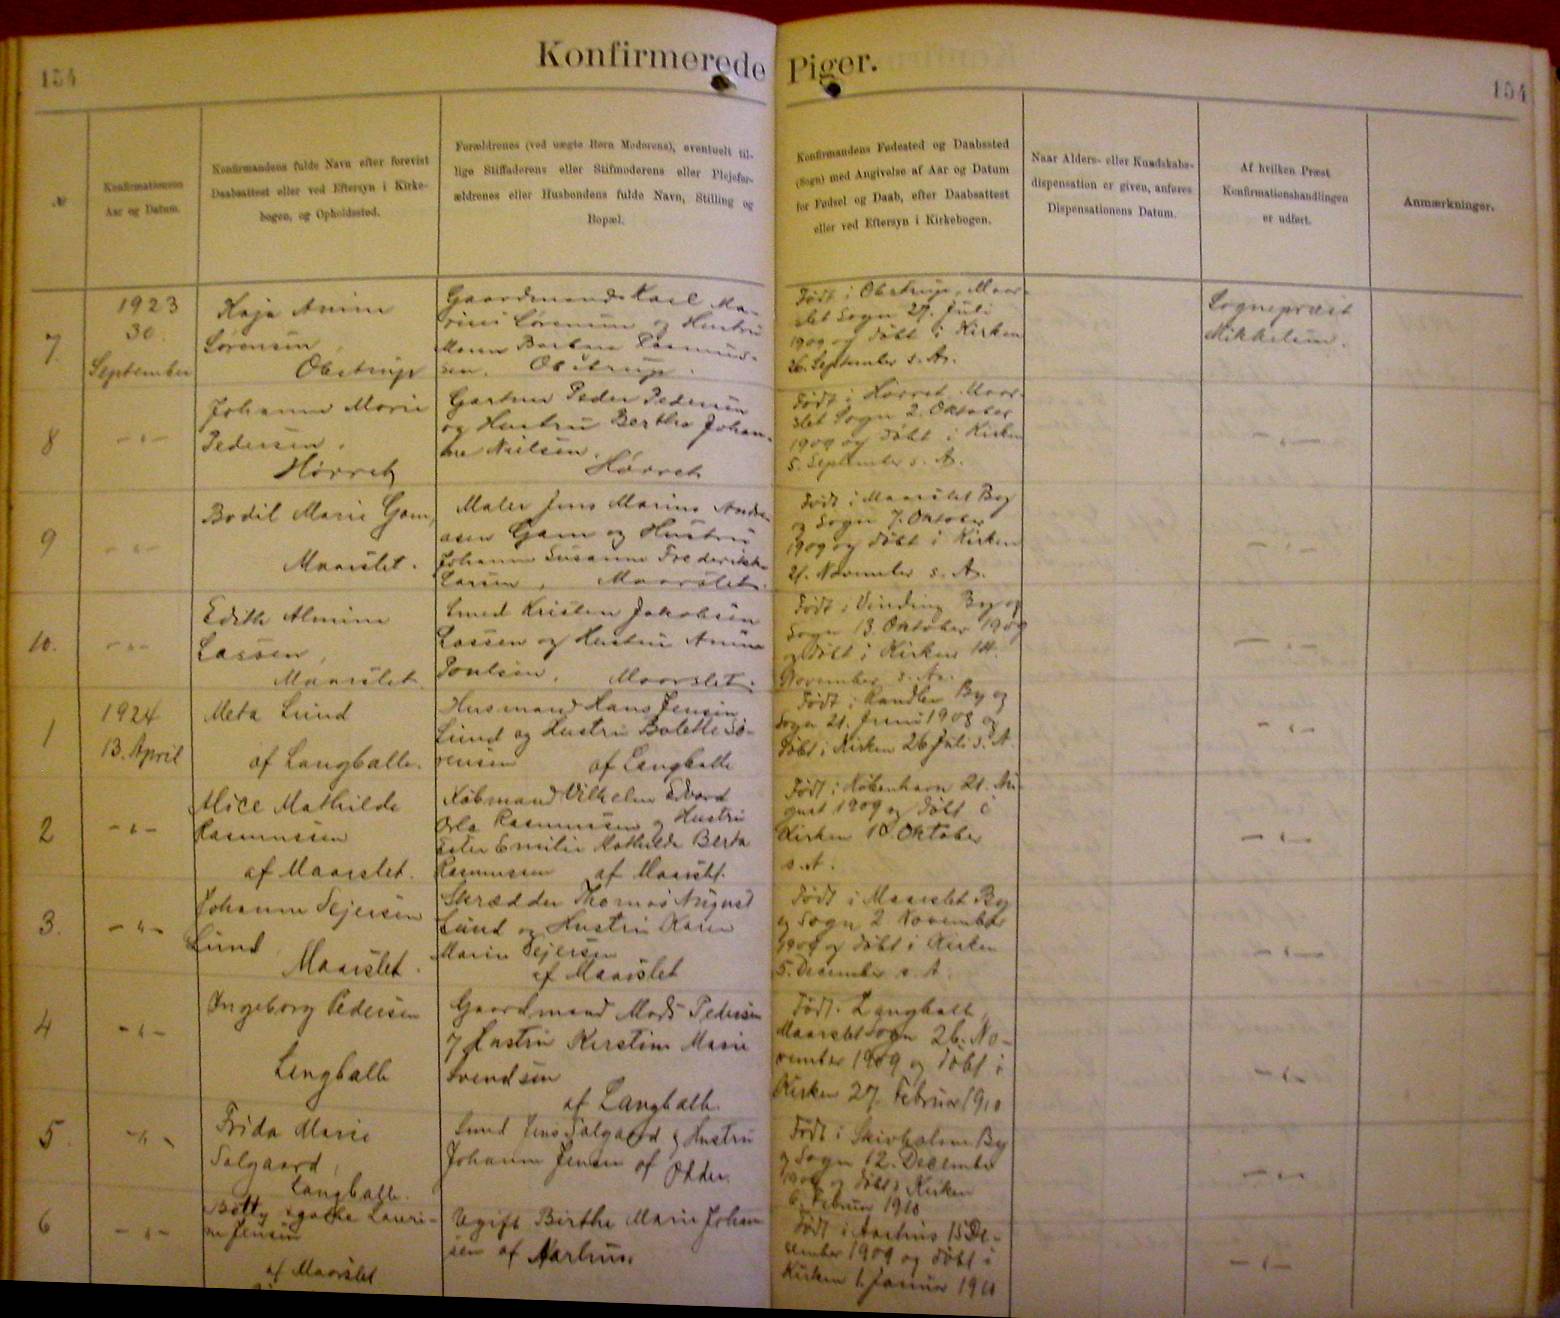 154
Konfirmerede Piger.
154
№
Konfirmationens
Aar og Datum.
Konfirmandens fulde Navn efter forevist
Daabsattest eller ved Eftersyn i Kirke-
bogen, og Opholdssted.
Forældrenes (ved uægte Børn Moderens), eventuelt til-
lige Stiffaderens eller Stifmoderens eller Plejefor-
ældrenes eller Husbondens fulde Navn, Stilling og
Bopæl.
Konfirmandens Fødested og Daabssted
(Sogn) med Angivelse af Aar og Datum
for Fødsel og Daab, efter Daabsattest
eller ved Eftersyn i Kirkebogen.
Naar Alders- eller Kundskabs-
dispensation er given, anføres
Dispensationens Datum.
Af hvilken Præst
Konfirmationshandlingen
er udført.
Anmærkninger.
7.
1923
30.
September
Kaja Anine
Sørensen,
Obstrup
Gaardmand Karl Ma-
rius Sørensen og Hustru
Maren Barbara Rasmus-
sen. Obstrup.
Født i Obstrup, Maar-
slet Sogn 27. Juli
1909 og døbt i Kirken
26. September s. A.
Sognepræst
Mikkelsen.
8
- " -
Johanne Marie
Pedersen,
Hørret
Gartner Peder Pedersen
og Hustru Berthe Johan-
ne Nielsen,
Hørret
Født i Hørret Maar-
slet Sogn 2. Oktober
1909 og døbt i Kirken
5. September s. A.
- " -
9
- " -
Bodil Marie Gam,
Maarslet.
Maler Jens Marius Andre-
asen Gam og Hustru
Johanne Susanne Frederikke
Larsen, Maarslet.
Født i Maarslet By
og Sogn 7. Oktober
1909 og døbt i Kirken
21. November s. A.
- " -
10.
- " -
Edith Almine
Lassen,
Maarslet.
Smed Kristen Jakobsen
Lassen og Hustru Anine
Poulsen, Maarslet.
Født i Vinding By og
Sogn 13. Oktober 1909
og døbt i Kirken 14.
November s. A.
- " -
1
1924
13. April
Meta Lund
af Langballe.
Husmand Hans Jensen
Lund og Hustru Bolette Sö-
rensen af Langballe
Født i Randlev By og
Sogn 21. Juni 1908 og
døbt i Kirken 26 Juli s. A.
- " -
2
- " -
Alice Mathilde
Rasmussen
af Maarslet.
Købmand Vilhelm Edvard
Orla Rasmussen og Hustru
Ester Emilie Mathilde Berta
Rasmussen af Maarslet.
Født i København 21. Au-
gust 1909 og døbt i
Kirken 10. Oktober
s. A.
- " -
3.
- " -
Johanne Sejersen
Lund,
Maarslet.
Skrædder Thomas August
Lund og Hustru Karen
Marie Sejersen
af Maarslet
Født i Maarslet By
og Sogn 2 November
1909 og døbt i Kirken
5. December s. A.
- " -
4
- " -
Ingeborg Pedersen
Langballe
Gaardmand Mads Pedersen
og Hustru Kirstine Marie
Svendsen
af Langballe.
Født i Langballe,
Maarslet Sogn 26. No-
vember 1909 og døbt i
Kirken 27. Februar 1910
- " -
5.
- " -
Frida Marie
Salgaard,
Langballe.
Smed Jens Salgaard og Hustru
Johanne Jensen af Odder.
Født i Skivholme By
og Sogn 12. December
1909 og døbt i Kirken
6. Februar 1910
- " -
6
- " -
Betty Agathe Lauri-
ne Jensen
af Maarslet
Ugift Birthe Marie Johan-
sen af Aarhus.
Født i Aarhus 15 De-
cember 1909 og døbt i
Kirken 1. Januar 1910
- " -